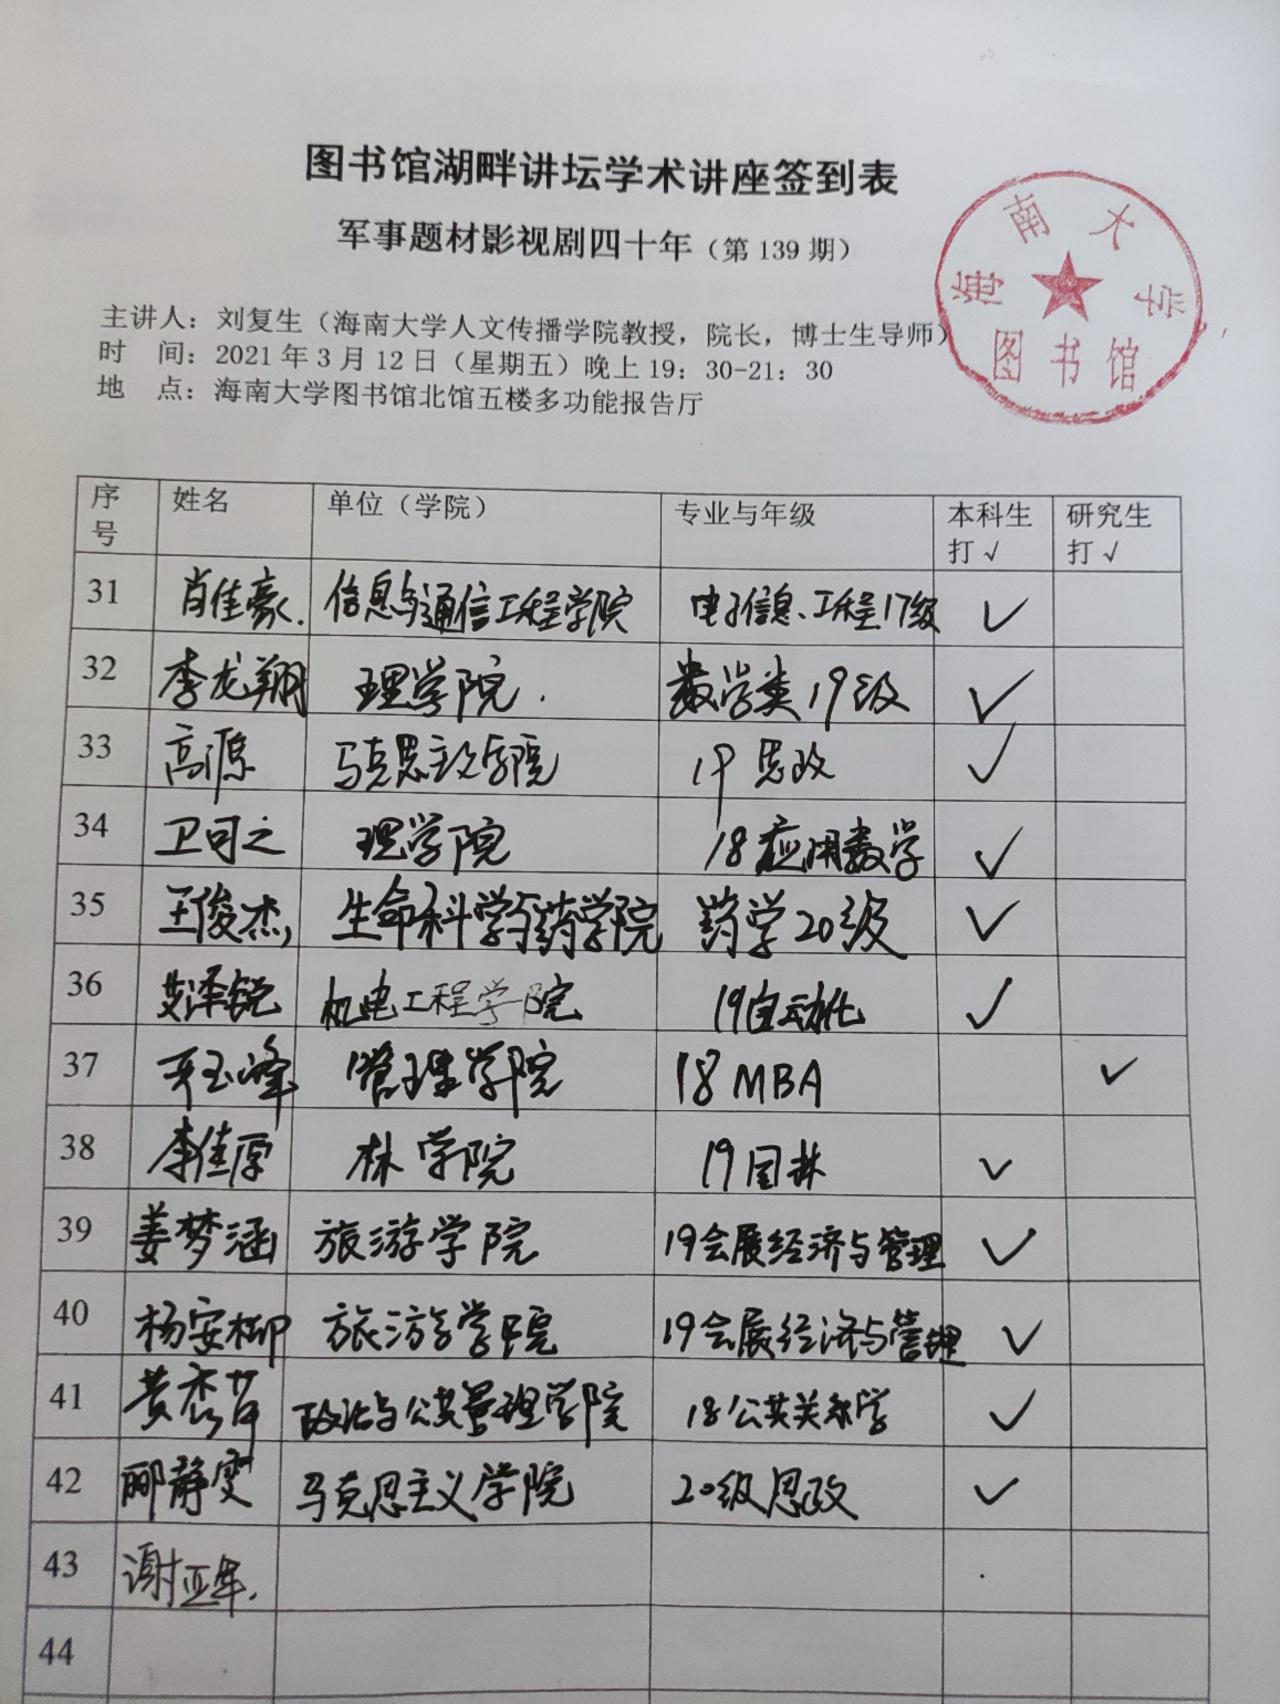 图书馆湖畔讲坛学术讲座签到表
军事题材影视剧四十年（第 139 期）
海南大学
图书馆
主讲人：刘复生（海南大学人文传播学院教授，院长，博士生导师）
时　间：2021 年 3 月 12 日（星期五）晚上 19：30-21：30
地　点：海南大学图书馆北馆五楼多功能报告厅
序号 姓名 单位（学院） 专业与年级 本科生打√ 研究生打√
31 肖佳豪. 信息与通信工程学院 电子信息、工程17级 ✓
32 李龙翔 理学院. 数学类19级 ✓
33 高源 马克思主义学院 19思政 ✓
34 卫可之 理学院 18应用数学 ✓
35 王俊杰 生命科学与药学院 药学20级 ✓
36 艾泽锐 机电工程学院 19自动化 ✓
37 玉峰 管理学院 18MBA ✓
38 李佳原 林学院 19园林 ✓
39 姜梦涵 旅游学院 19会展经济与管理 ✓
40 杨安柳 旅游学院 19会展经济与管理 ✓
41 黄 政治与公共管理学院 18公共关系学 ✓
42 郦静雯 马克思主义学院 20级思政 ✓
43 谢亚军.
44